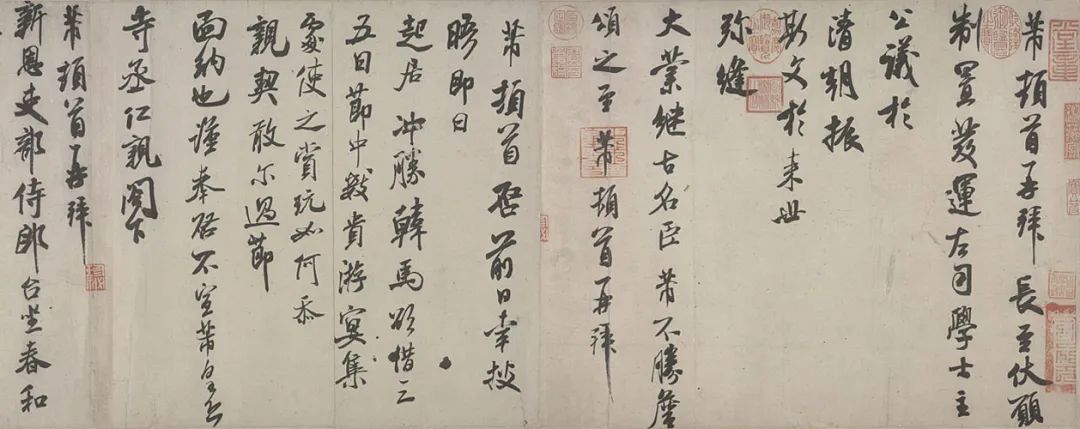 芾頓首再拜長至伏願
制置發運左司學士主
公議於
清朝振
斯文於来世
弥縫
大業继古名臣芾不勝詹
頌之至芾頓首再拜
芾頓首啓前日幸披
晤即日
起居冲勝韓馬欲借三
五日節中數貴游宴集
處使之賞玩如何忝
親契敢尓過節
面納也謹奉啓不宣芾皇恐
寺丞仁親閣下
芾頓首再拜
新恩吏部侍郎台坐春和